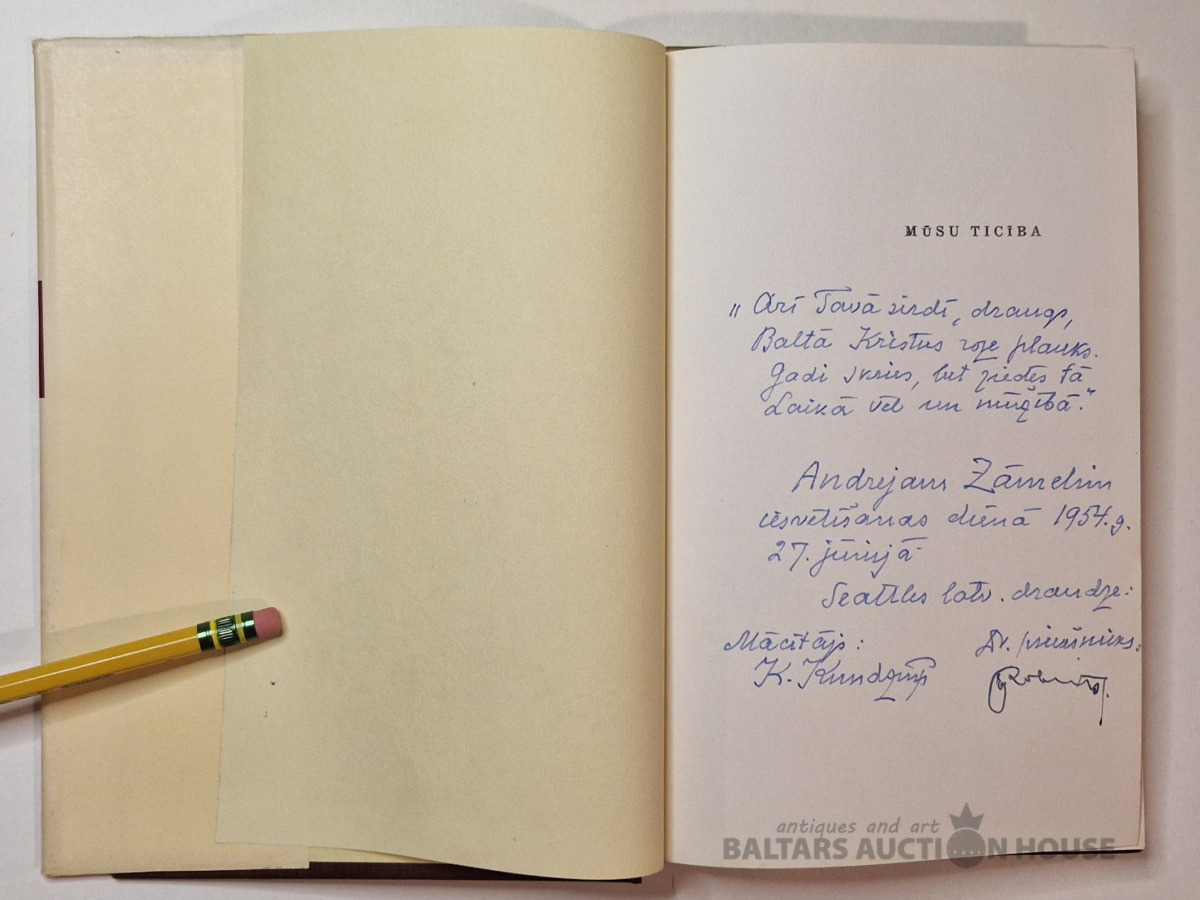 MŪSU TICĪBA
„Arī Tavā sirdī, draugs,
Baltā Kristus roze plauks.
Gadi skries, bet ziedēs tā
Laikā vēl un mūžībā.“
Andrejam Zāmelim
iesvētīšanas dienā 1954.g.
27. jūnijā.
Seattles latv. draudze:
Mācītājs: Dr. priekšnieks:
K. Kundziņš
antiques and art
BALTARS AUCTION HOUSE